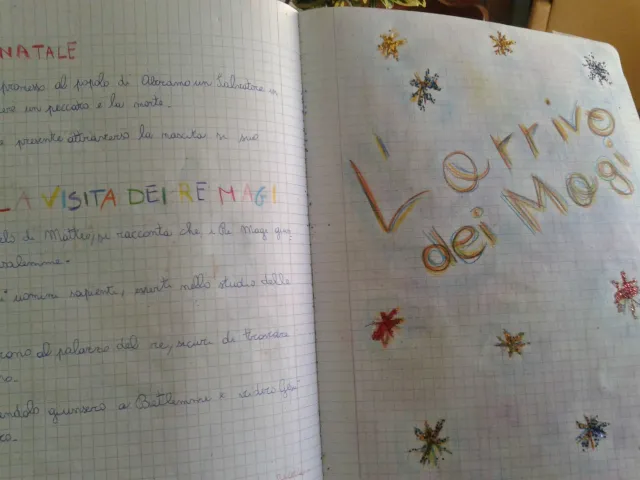 NATALE
promesso al popolo di Abramo un Salvatore in
un peccato e la morte.
presente attraverso la nascita di suo
LA VISITA DEI RE MAGI
di Matteo, si racconta che i Re Magi giun
salemme.
uomini sapienti, esperti nello studio delle
al palazzo del re, sicuri di trovare
giunsero a Betlemme e
L'arrivo
dei Magi